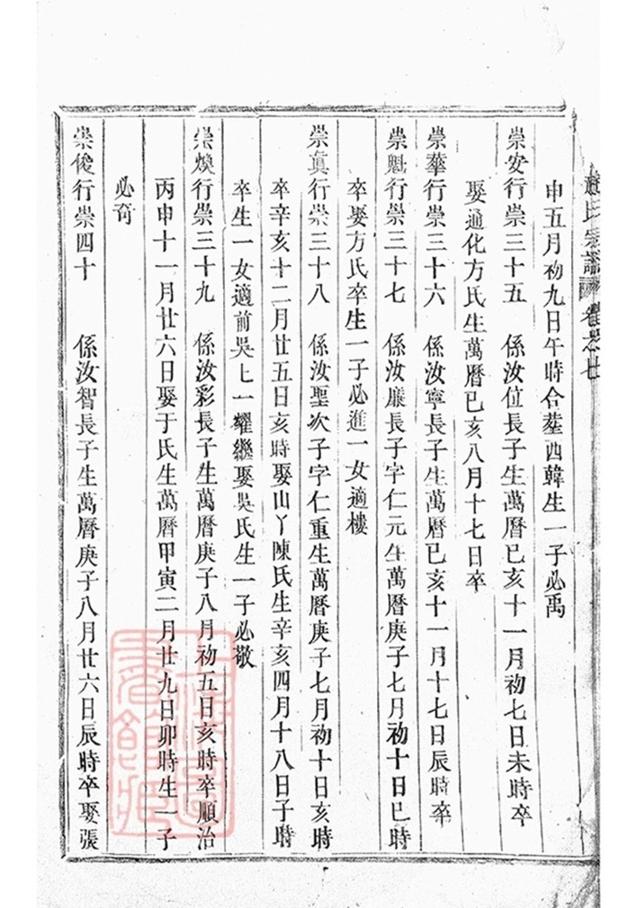 氏宗譜 卷之七
申五月初九日午時合塟西韓生一子必禹
崇安行崇三十五 係汝位長子生萬曆已亥十一月初七日未時卒
娶通化方氏生萬曆已亥八月十七日卒
崇華行崇三十六 係汝寧長子生萬曆已亥十一月十七日辰時卒
崇魁行崇三十七 係汝廉長子字仁元生萬曆庚子七月初十日巳時
卒娶方氏卒生一子必進一女適樓
崇眞行崇三十八 係汝聖次子字仁重生萬曆庚子七月初十日亥時
卒辛亥十二月廿五日亥時娶山丫陳氏生辛亥四月十八日子時
卒生一女適前吳上一耀繼娶吳氏生一子必敬
崇煥行崇三十九 係汝彩長子生萬曆庚子八月初五日亥時卒順治
丙申十一月廿六日娶于氏生萬曆甲寅二月廿九日卯時生一子
必奇
崇俊行崇四十 係汝智長子生萬曆庚子八月廿六日辰時卒娶張